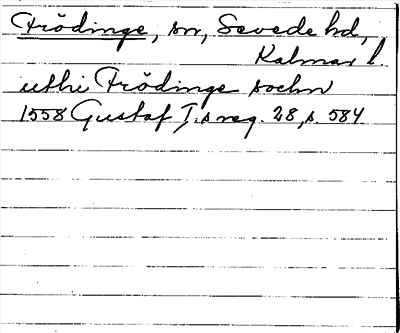 Frödinge, sn, Sevede hd,
Kalmar l.
uthi Frödinge sochn
1558 Gustaf I:s reg. 28, s. 584